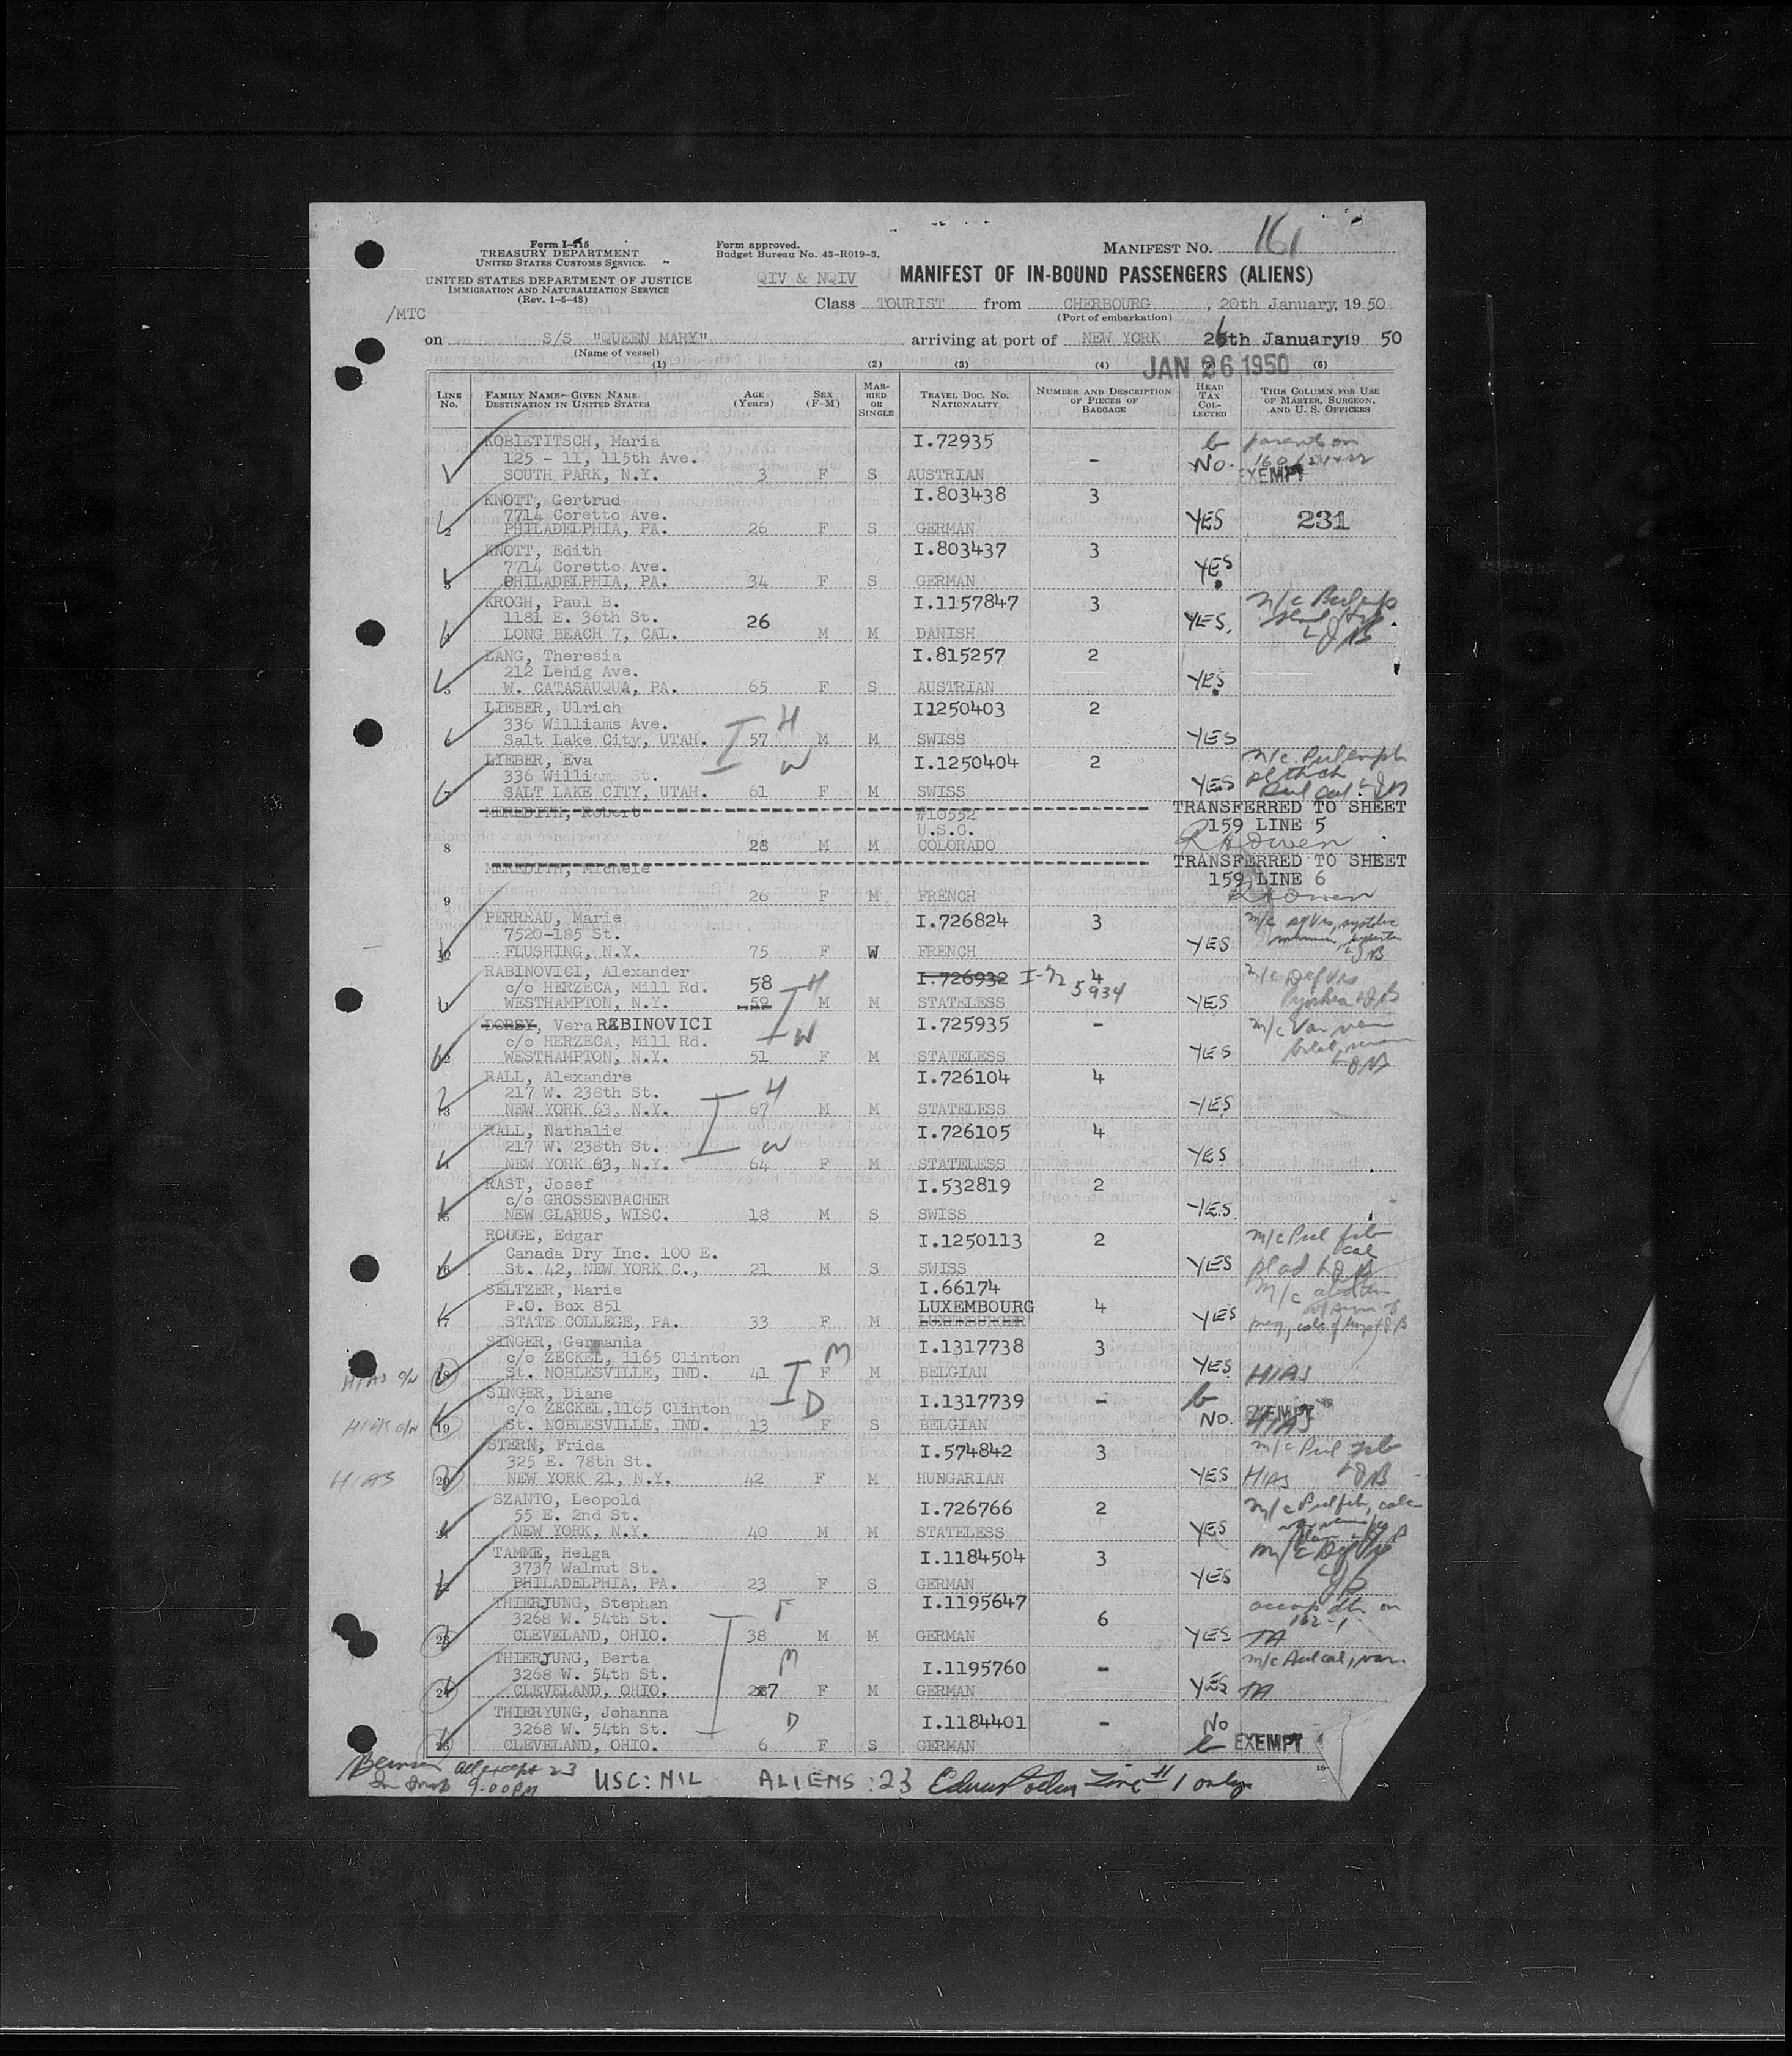 161
Form I-415
TREASURY DEPARTMENT
UNITED STATES CUSTOMS SERVICE
UNITED STATES DEPARTMENT OF JUSTICE
IMMIGRATION AND NATURALIZATION SERVICE
(Rev. 1-5-48)
Form approved.
Budget Bureau No. 43-R019-3.
MANIFEST NO.
QIV & NQIV
MANIFEST OF IN-BOUND PASSENGERS (ALIENS)
Class TOURIST from CHERBOURG, 20th January, 1950
(Port of embarkation)
/MTC
on S/S "QUEEN MARY" arriving at port of NEW YORK 26th January 19 50
(Name of vessel)
JAN 26 1950
(1) (2) (3) (4) (6)
LINE No.
FAMILY NAME—GIVEN NAME
DESTINATION IN UNITED STATES
AGE (Years)
SEX (F-M)
MARRIED OR SINGLE
TRAVEL DOC. NO. NATIONALITY
NUMBER AND DESCRIPTION OF PIECES OF BAGGAGE
HEAD TAX COLLECTED
THIS COLUMN FOR USE OF MASTER, SURGEON, AND U. S. OFFICERS
KOBIETITSCH, Maria I.72935 parents on
125 - 11, 115th Ave. -
SOUTH PARK, N.Y. 3 F S AUSTRIAN NO. EXEMPT
KNOTT, Gertrud I.803438 3
7714 Coretto Ave.
2 PHILADELPHIA, PA. 26 F S GERMAN YES 231
KNOTT, Edith I.803437 3
7714 Coretto Ave.
3 PHILADELPHIA, PA. 34 F S GERMAN YES
KROGH, Paul B. I.1157847 3
1181 E. 36th St. 26
LONG BEACH 7, CAL. M M DANISH YES.
LANG, Theresia I.815257 2
212 Lehig Ave.
5 W. CATASAUQUA, PA. 65 F S AUSTRIAN YES
LIEBER, Ulrich I1250403 2
336 Williams Ave. H
Salt Lake City, UTAH. 57 M M SWISS YES
LIEBER, Eva I.1250404 2
336 Williams St. W
SALT LAKE CITY, UTAH. 61 F M SWISS YES
MEREDITH, Robert #10552 TRANSFERRED TO SHEET
U.S.C. 159 LINE 5
8 28 M M COLORADO RHOwen
MEREDITH, Michele TRANSFERRED TO SHEET
159 LINE 6
9 26 F M FRENCH RHOwen
PERREAU, Marie I.726824 3
7520-185 St.
10 FLUSHING, N.Y. 75 F W FRENCH YES
RABINOVICI, Alexander I.726932 I-72 5934 4
c/o HERZECA, Mill Rd. 58 H
WESTHAMPTON, N.Y. 59 M M STATELESS YES
DORSY, Vera RABINOVICI I.725935 -
c/o HERZECA, Mill Rd. W
12 WESTHAMPTON, N.Y. 51 F M STATELESS YES
RALL, Alexandre I.726104 4
217 W. 238th St. H
13 NEW YORK 63, N.Y. 67 M M STATELESS YES
RALL, Nathalie I.726105 4
217 W. 238th St. W
NEW YORK 63, N.Y. 64 F M STATELESS YES
RAST, Josef I.532819 2
c/o GROSSENBACHER
15 NEW GLARUS, WISC. 18 M S SWISS YES.
ROUGE, Edgar I.1250113 2
Canada Dry Inc. 100 E.
16 St. 42, NEW YORK C., 21 M S SWISS YES
SELTZER, Marie I.66174
P.O. Box 851 LUXEMBOURG 4
17 STATE COLLEGE, PA. 33 F M LUXEMBURGER YES
SINGER, Germania I.1317738 3
c/o ZECKEL, 1165 Clinton M
HIAS 18 St. NOBLESVILLE, IND. 41 F M BELGIAN YES HIAS
SINGER, Diane I.1317739 -
c/o ZECKEL,1165 Clinton D
HIAS 19 St. NOBLESVILLE, IND. 13 F S BELGIAN NO. EXEMPT HIAS
STERN, Frida I.574842 3
325 E. 78th St.
HIAS 20 NEW YORK 21, N.Y. 42 F M HUNGARIAN YES HIAS
SZANTO, Leopold I.726766 2
55 E. 2nd St.
21 NEW YORK, N.Y. 40 M M STATELESS YES
TAMME, Helga I.1184504 3
3737 Walnut St.
22 PHILADELPHIA, PA. 23 F S GERMAN YES
THIERJUNG, Stephan I.1195647 F
3268 W. 54th St. 6 162-1
23 CLEVELAND, OHIO. 38 M M GERMAN YES
THIERJUNG, Berta M
3268 W. 54th St. I.1195760 -
24 CLEVELAND, OHIO. 27 F M GERMAN YES
THIERYUNG, Johanna D
3268 W. 54th St. I.1184401 - No
25 CLEVELAND, OHIO. 6 F S GERMAN EXEMPT
all except 23
9:00PM USC: NIL ALIENS: 23 Line # 1 only
16-